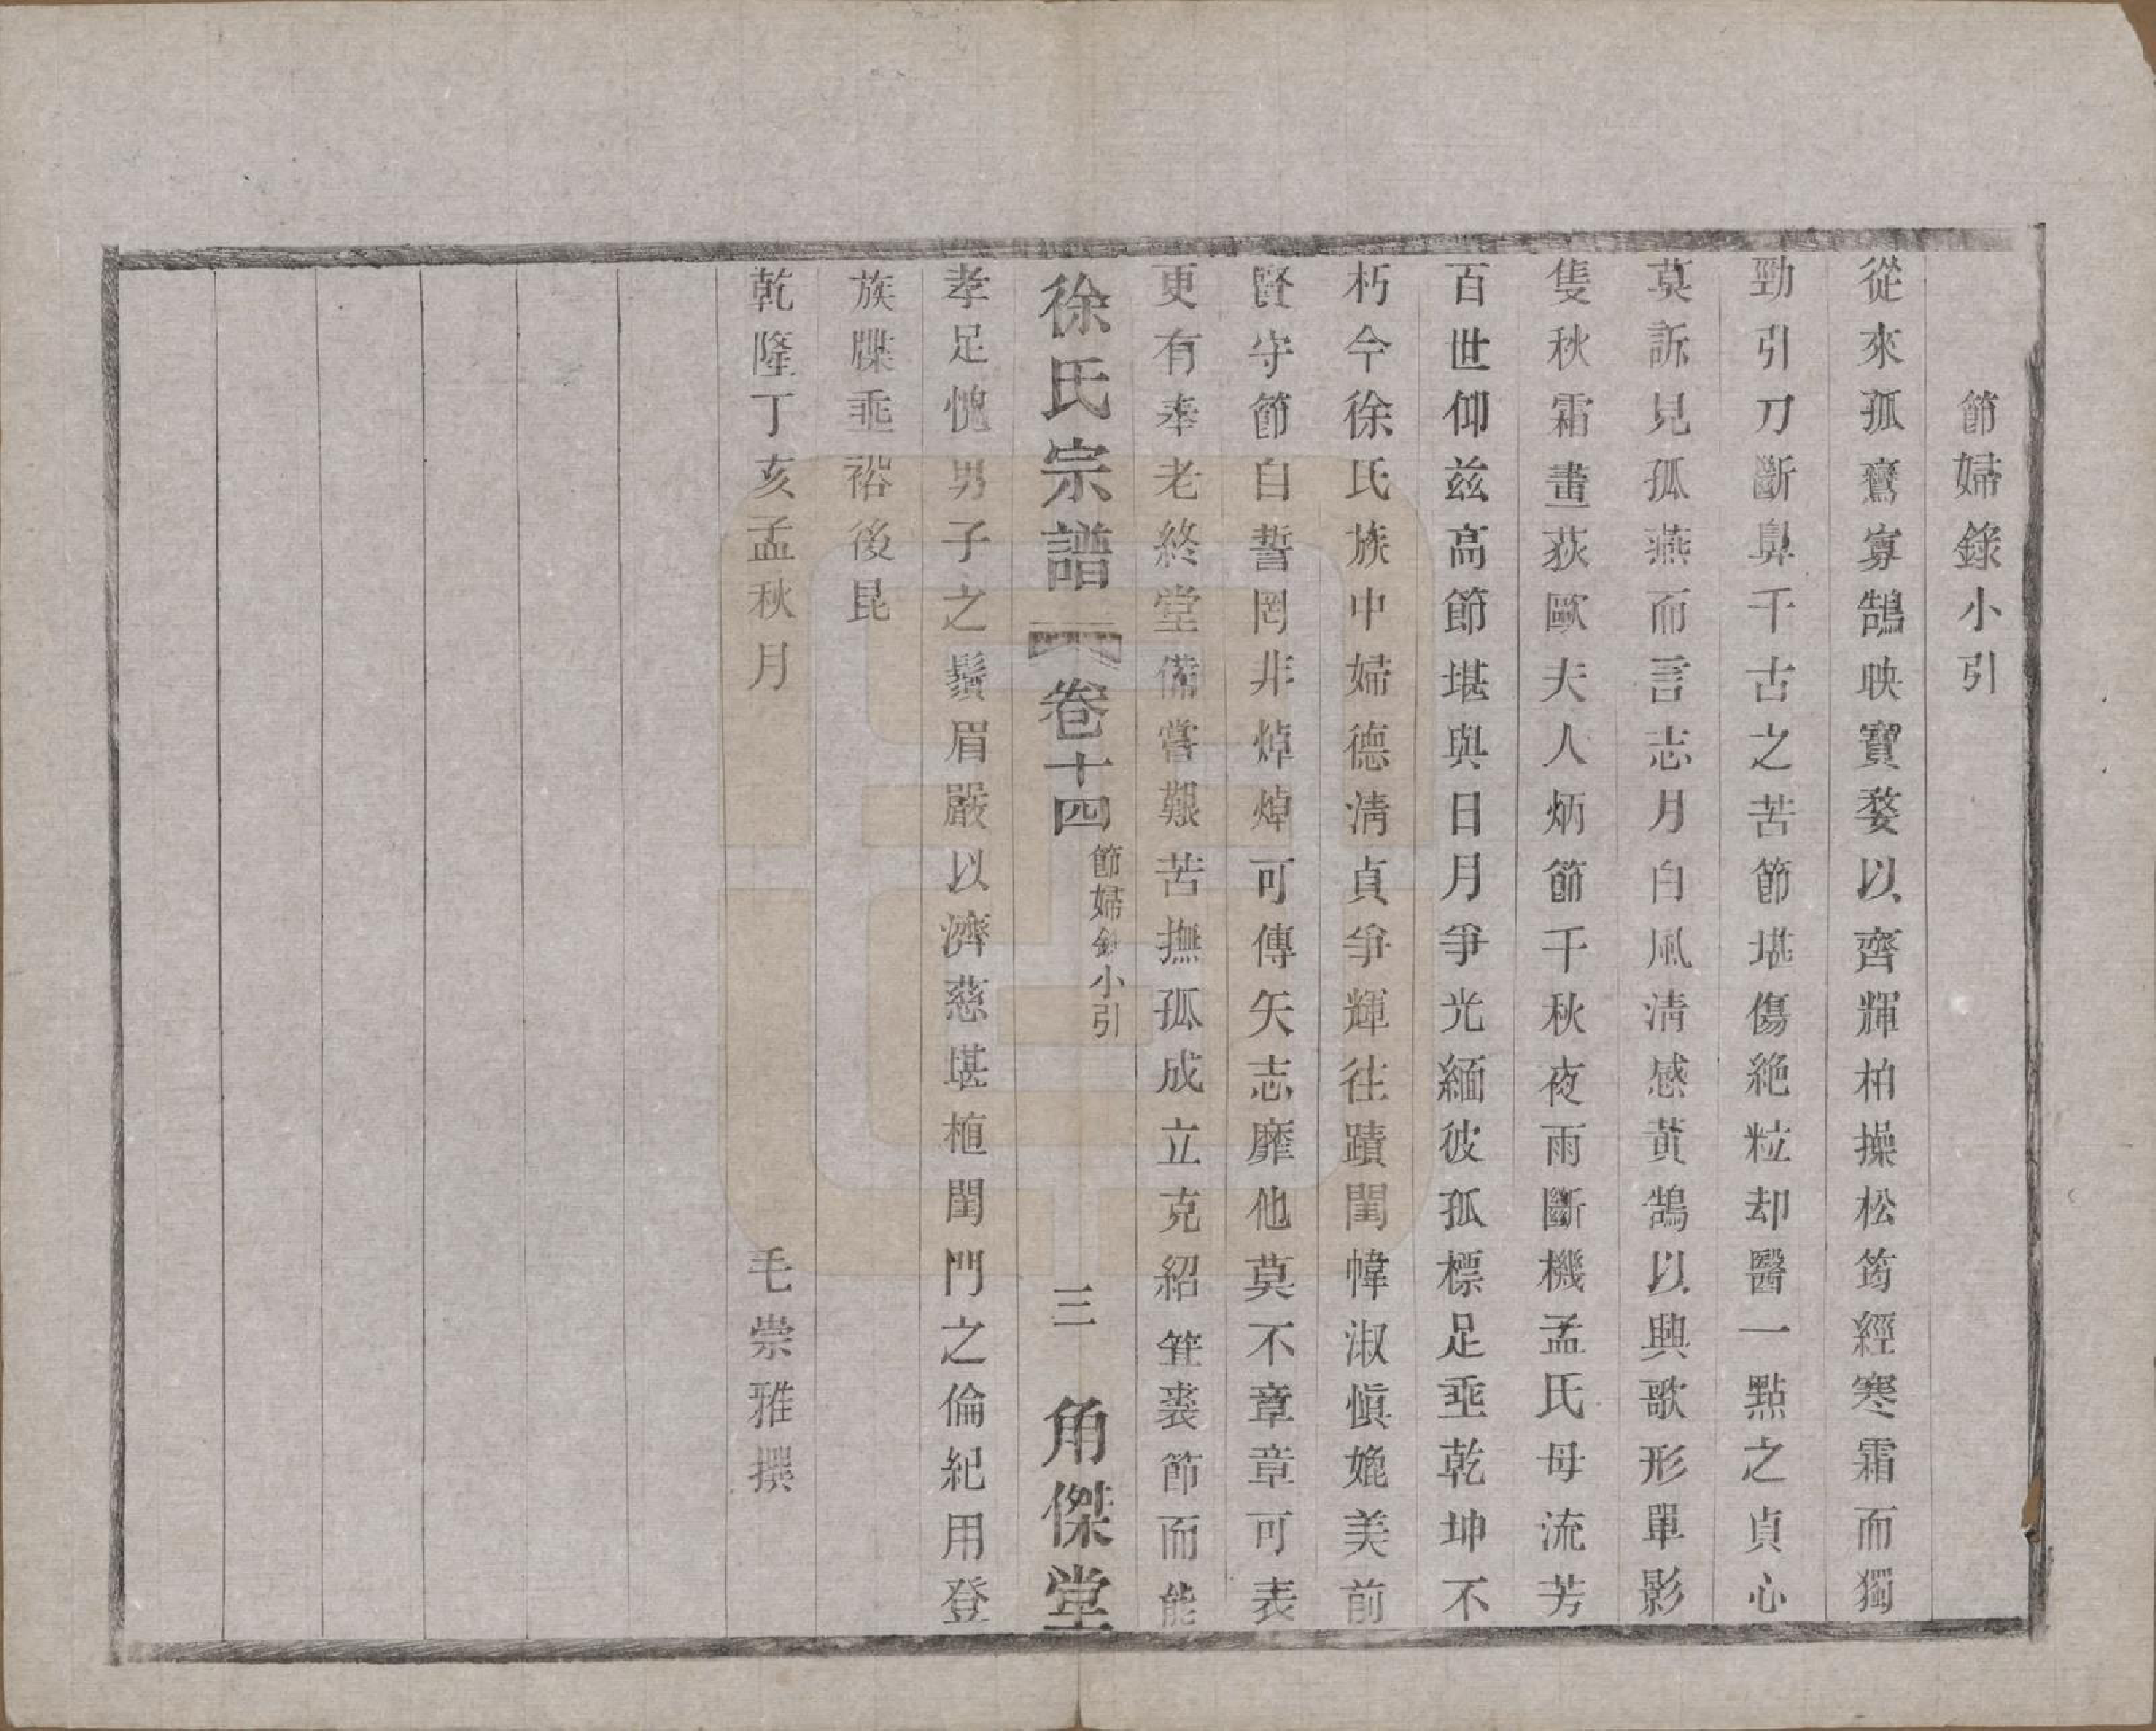 節婦錄小引
從來孤鸞寡鵠映寶婺以齊輝柏操松筠經寒霜而獨
勁引刀斷鼻千古之苦節堪傷絶粒却醫一點之貞心
莫訴見孤燕而言志月白風淸感黃鵠以興歌形單影
隻秋霜畫荻歐夫人炳節千秋夜雨斷機孟氏母流芳
百世仰兹高節堪與日月爭光緬彼孤標足垂乾坤不
朽今徐氏族中婦德淸貞爭輝徃蹟閨幃淑愼媲美前
賢守節白誓罔非焯焯可傳矢志靡他莫不章章可表
更有奉老終堂備嘗艱苦撫孤成立克紹箕裘節而能
徐氏宗譜 卷十四 節婦錄小引 三 角傑堂
孝足愧男子之鬚眉嚴以濟慈堪植閨門之倫紀用登
族牒垂裕後昆
乾隆丁亥孟秋月 毛崇雅撰